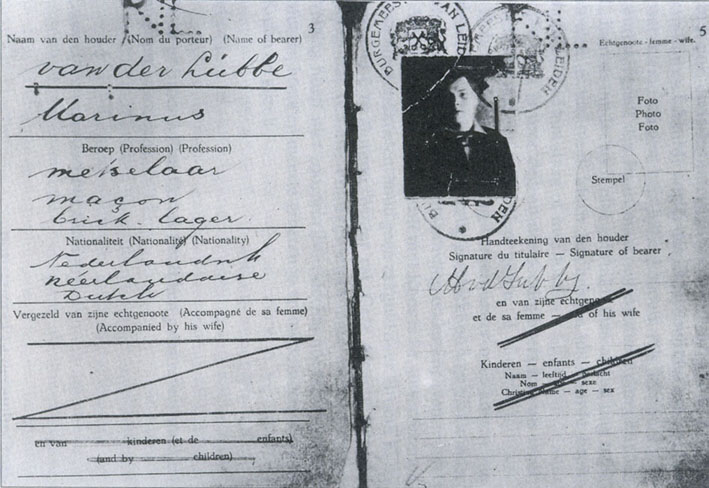 3
Naam van den houder (Nom du porteur) (Name of bearer)
van der Lubbe
Marinus
Beroep (Profession) (Profession)
metselaar
maçon
brick-layer
Nationaliteit (Nationalité) (Nationality)
Nederlandsch
néerlandaise
Dutch
Vergezeld van zijne echtgenoote (Accompagné de sa femme)
(Accompanied by his wife)
en van kinderen (et de enfants)
(and by children)
5
BURGEMEESTER VAN LEIDEN
LEIDEN
Echtgenoote - femme - wife.
Foto
Photo
Foto
Stempel
Handteekening van den houder
Signature du titulaire — Signature of bearer
MvdLubbe
en van zijne echtgenoote
et de sa femme — and of his wife
Kinderen — enfants — children
Naam — leeftijd — geslacht
Nom — age — sexe
Christian Name — age — sex